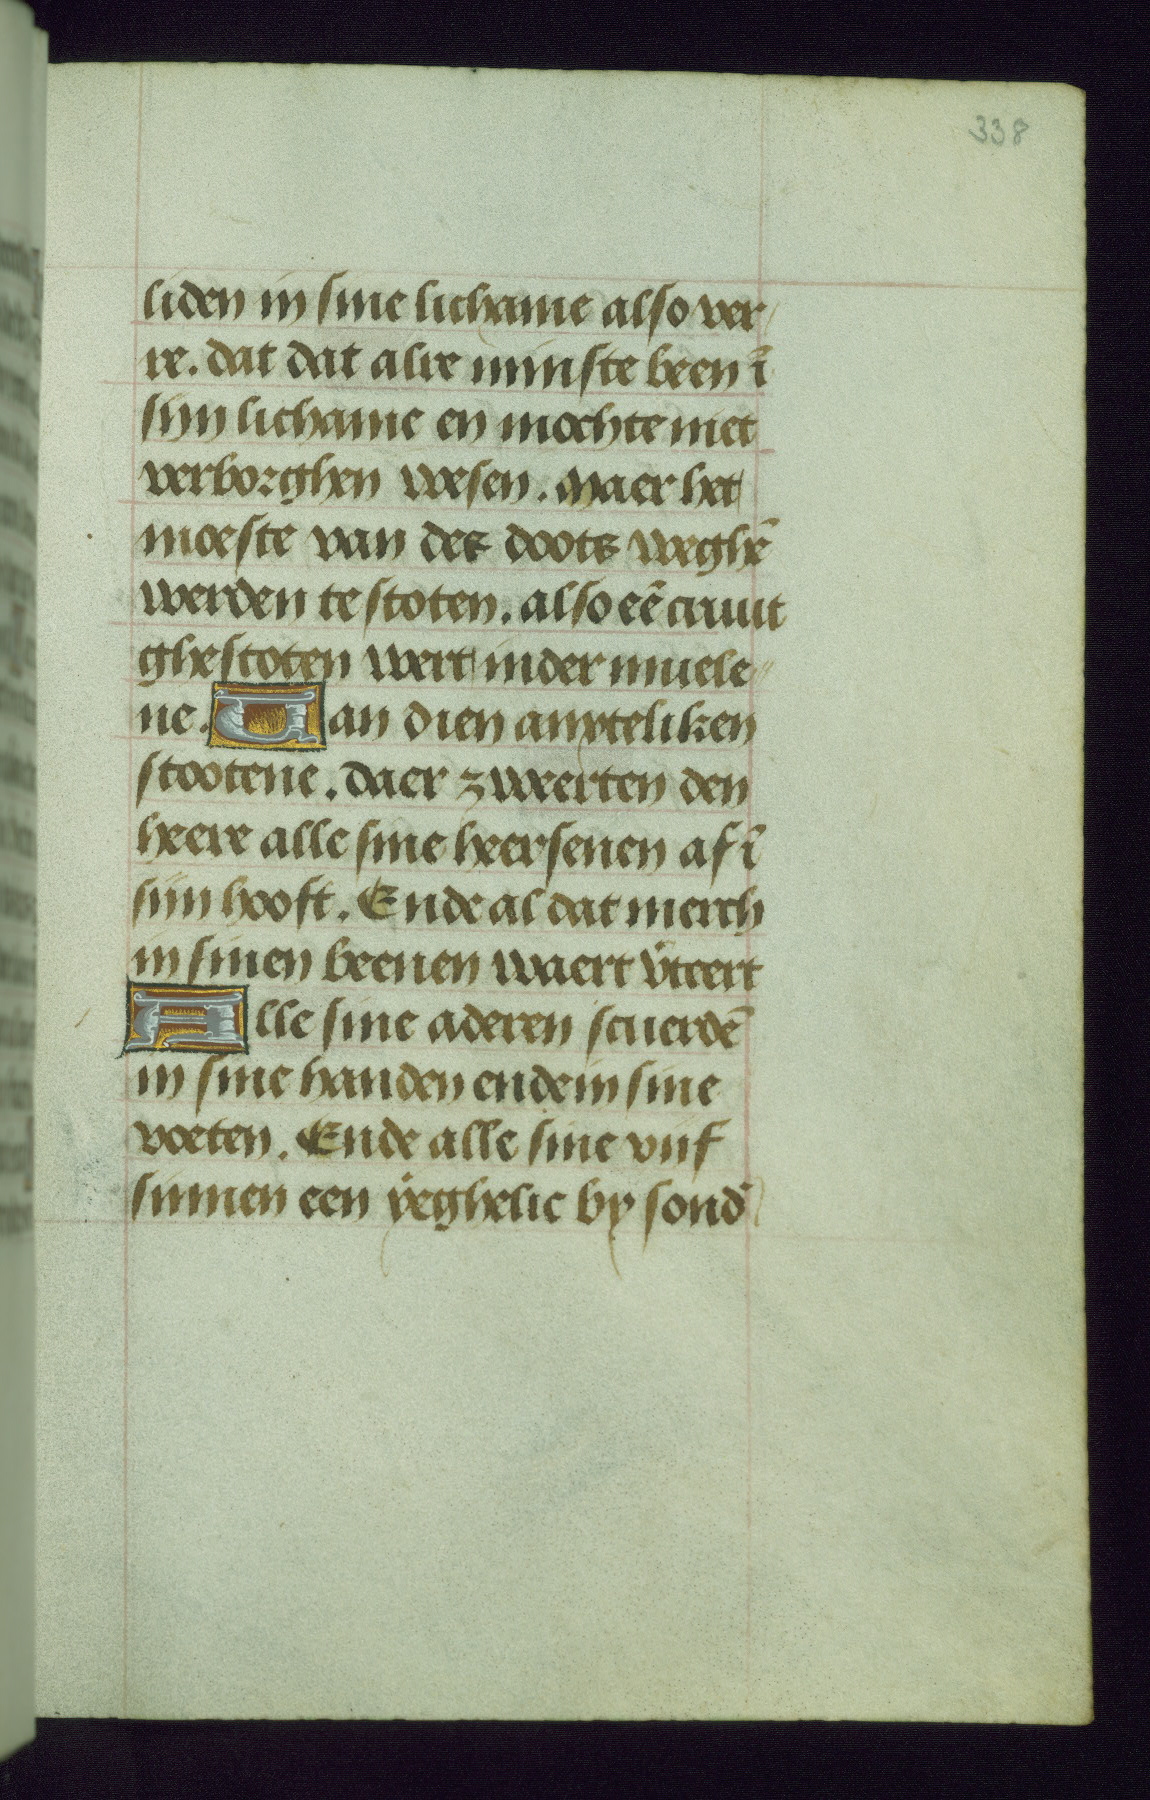 338
liden in sine lichame also ver
re. dat dat alre minste been ī
sijn lichame en mochte niet
verborghen wesen. Maer het
moeste van des doots weghē
werden te stoten. also eē cruut
ghestoten wert in der muele
ne. Van dien anxteliken
stootene. daer zweerten den
heere alle sine heersenen af ī
sijn hooft. Ende al dat merch
in sinen beenen waert ẏteert
Alle sine aderen scuerdē
in sine handen ende in sine
voeten. Ende alle sine viif
sinnen een ẏeghelic by sond